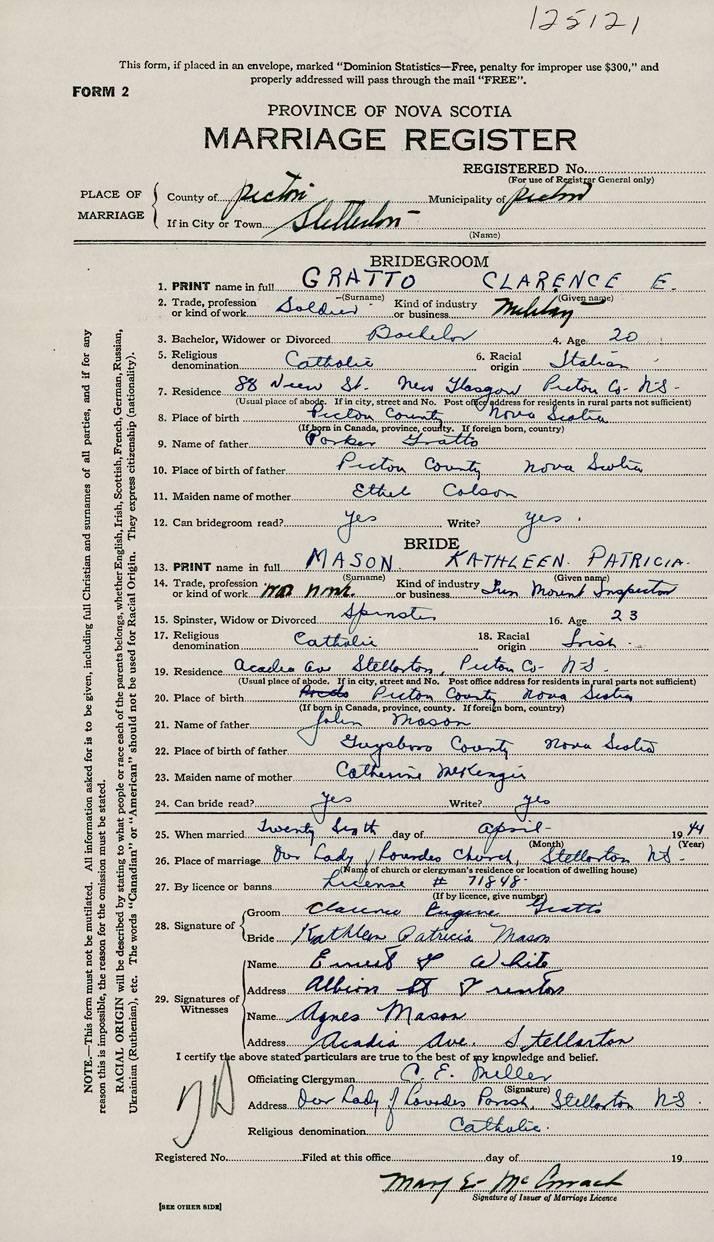 125121
This form, if placed in an envelope, marked "Dominion Statistics—Free, penalty for improper use $300," and
properly addressed will pass through the mail "FREE".
FORM 2
PROVINCE OF NOVA SCOTIA
MARRIAGE REGISTER
REGISTERED No.
(For use of Registrar General only)
PLACE OF MARRIAGE
County of Pictou Municipality of Pictou
If in City or Town Stellarton
(Name)
BRIDEGROOM
1. PRINT name in full GRATTO CLARENCE E.
(Surname) (Given name)
2. Trade, profession or kind of work Soldier Kind of industry or business Military
3. Bachelor, Widower or Divorced Bachelor 4. Age 20
5. Religious denomination Catholic 6. Racial origin Italian
7. Residence 88 View St. New Glasgow Pictou Co- N-S-
(Usual place of abode. If in city, street and No. Post office address for residents in rural parts not sufficient)
8. Place of birth Pictou County Nova Scotia
(If born in Canada, province, county. If foreign born, country)
9. Name of father Parker Gratto
10. Place of birth of father Pictou County Nova Scotia
11. Maiden name of mother Ethel Colson
12. Can bridegroom read? yes Write? yes
BRIDE
13. PRINT name in full MASON KATHLEEN PATRICIA
(Surname) (Given name)
14. Trade, profession or kind of work Kind of industry or business Gun Mount Inspector
15. Spinster, Widow or Divorced Spinster 16. Age 23
17. Religious denomination Catholic 18. Racial origin Irish
19. Residence Acadia Ave Stellarton, Pictou Co- N-S-
(Usual place of abode. If in city, street and No. Post office address for residents in rural parts not sufficient)
20. Place of birth Pictou County Nova Scotia
(If born in Canada, province, county. If foreign born, country)
21. Name of father John Mason
22. Place of birth of father Guysboro County Nova Scotia
23. Maiden name of mother Catherine McKenzie
24. Can bride read? yes Write? yes
25. When married Twenty Sixth day of April 1944
(Month) (Year)
26. Place of marriage Our Lady of Lourdes Church, Stellarton N-S-
(Name of church or clergyman's residence or location of dwelling house)
27. By licence or banns License # 71848
(If by licence, give number)
28. Signature of
Groom Clarence Eugene Gratto
Bride Kathleen Patricia Mason
29. Signatures of Witnesses
Name Ernest J White
Address Albion St Trenton
Name Agnes Mason
Address Acadia Ave. Stellarton
I certify the above stated particulars are true to the best of my knowledge and belief.
Officiating Clergyman C. E. Miller
(Signature)
Address Our Lady of Lourdes Parish, Stellarton N-S.
Religious denomination Catholic
Registered No. Filed at this office day of 19
Mary E- McCormack
Signature of Issuer of Marriage Licence
[SEE OTHER SIDE]
NOTE.—This form must not be mutilated. All information asked for is to be given, including full Christian and surnames of all parties, and if for any
reason this is impossible, the reason for the omission must be stated.
RACIAL ORIGIN will be described by stating to what people or race each of the parents belongs, whether English, Irish, Scottish, French, German, Russian,
Ukrainian (Ruthenian), etc. The words "Canadian" or "American" should not be used for Racial Origin. They express citizenship (nationality).